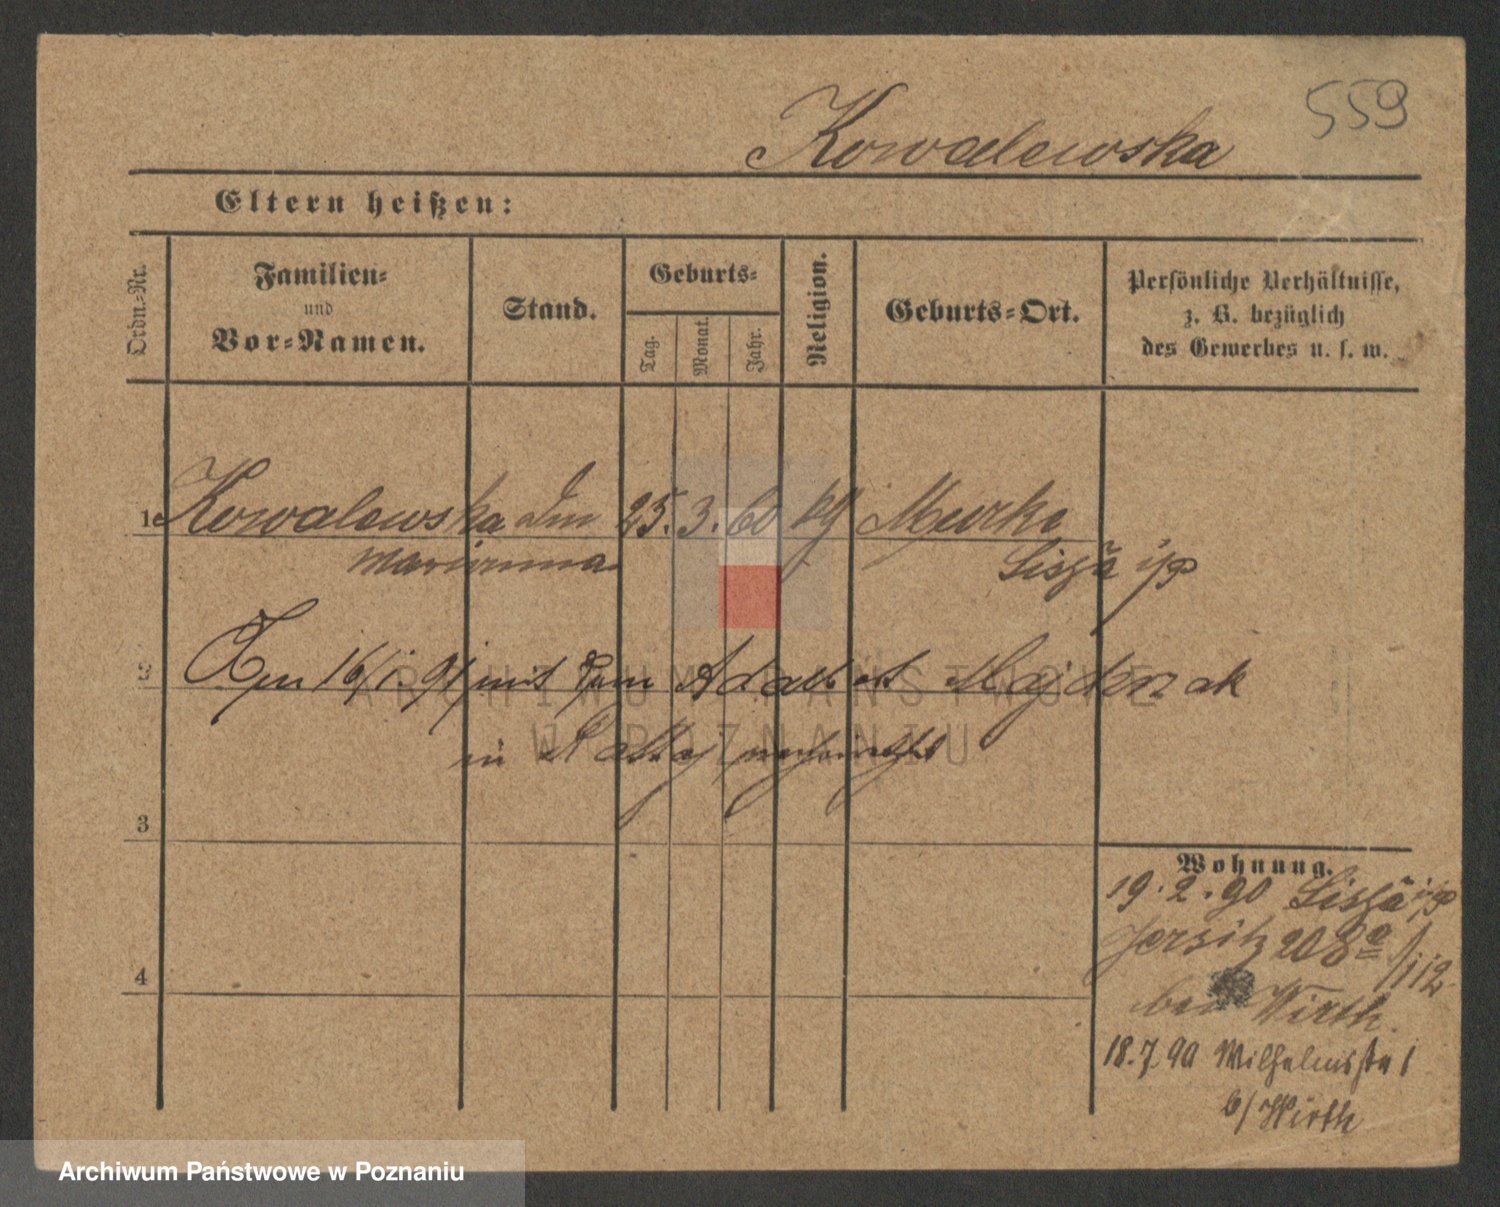 559
Kowalewska
Eltern heißen:
Ordn.-Nr.
Familien-
und
Vor-Namen.
Stand.
Geburts-
Tag.
Monat.
Jahr.
Religion.
Geburts-Ort.
Persönliche Verhältnisse,
z. B. bezüglich
des Gewerbes u. s. w.
1 Kowalewska 25. 3. 60
Marianna
2 16/1. 91 mit dem Adalbert Majchrzak
in verheirathet
ARCHIWUM PAŃSTWOWE
W POZNANIU
3
Wohnung.
19. 2. 90
Jersitz 208a
4
bei Wirth.
18.7.90 Wilhelmsstr 1
b/ Wirth
Archiwum Państwowe w Poznaniu